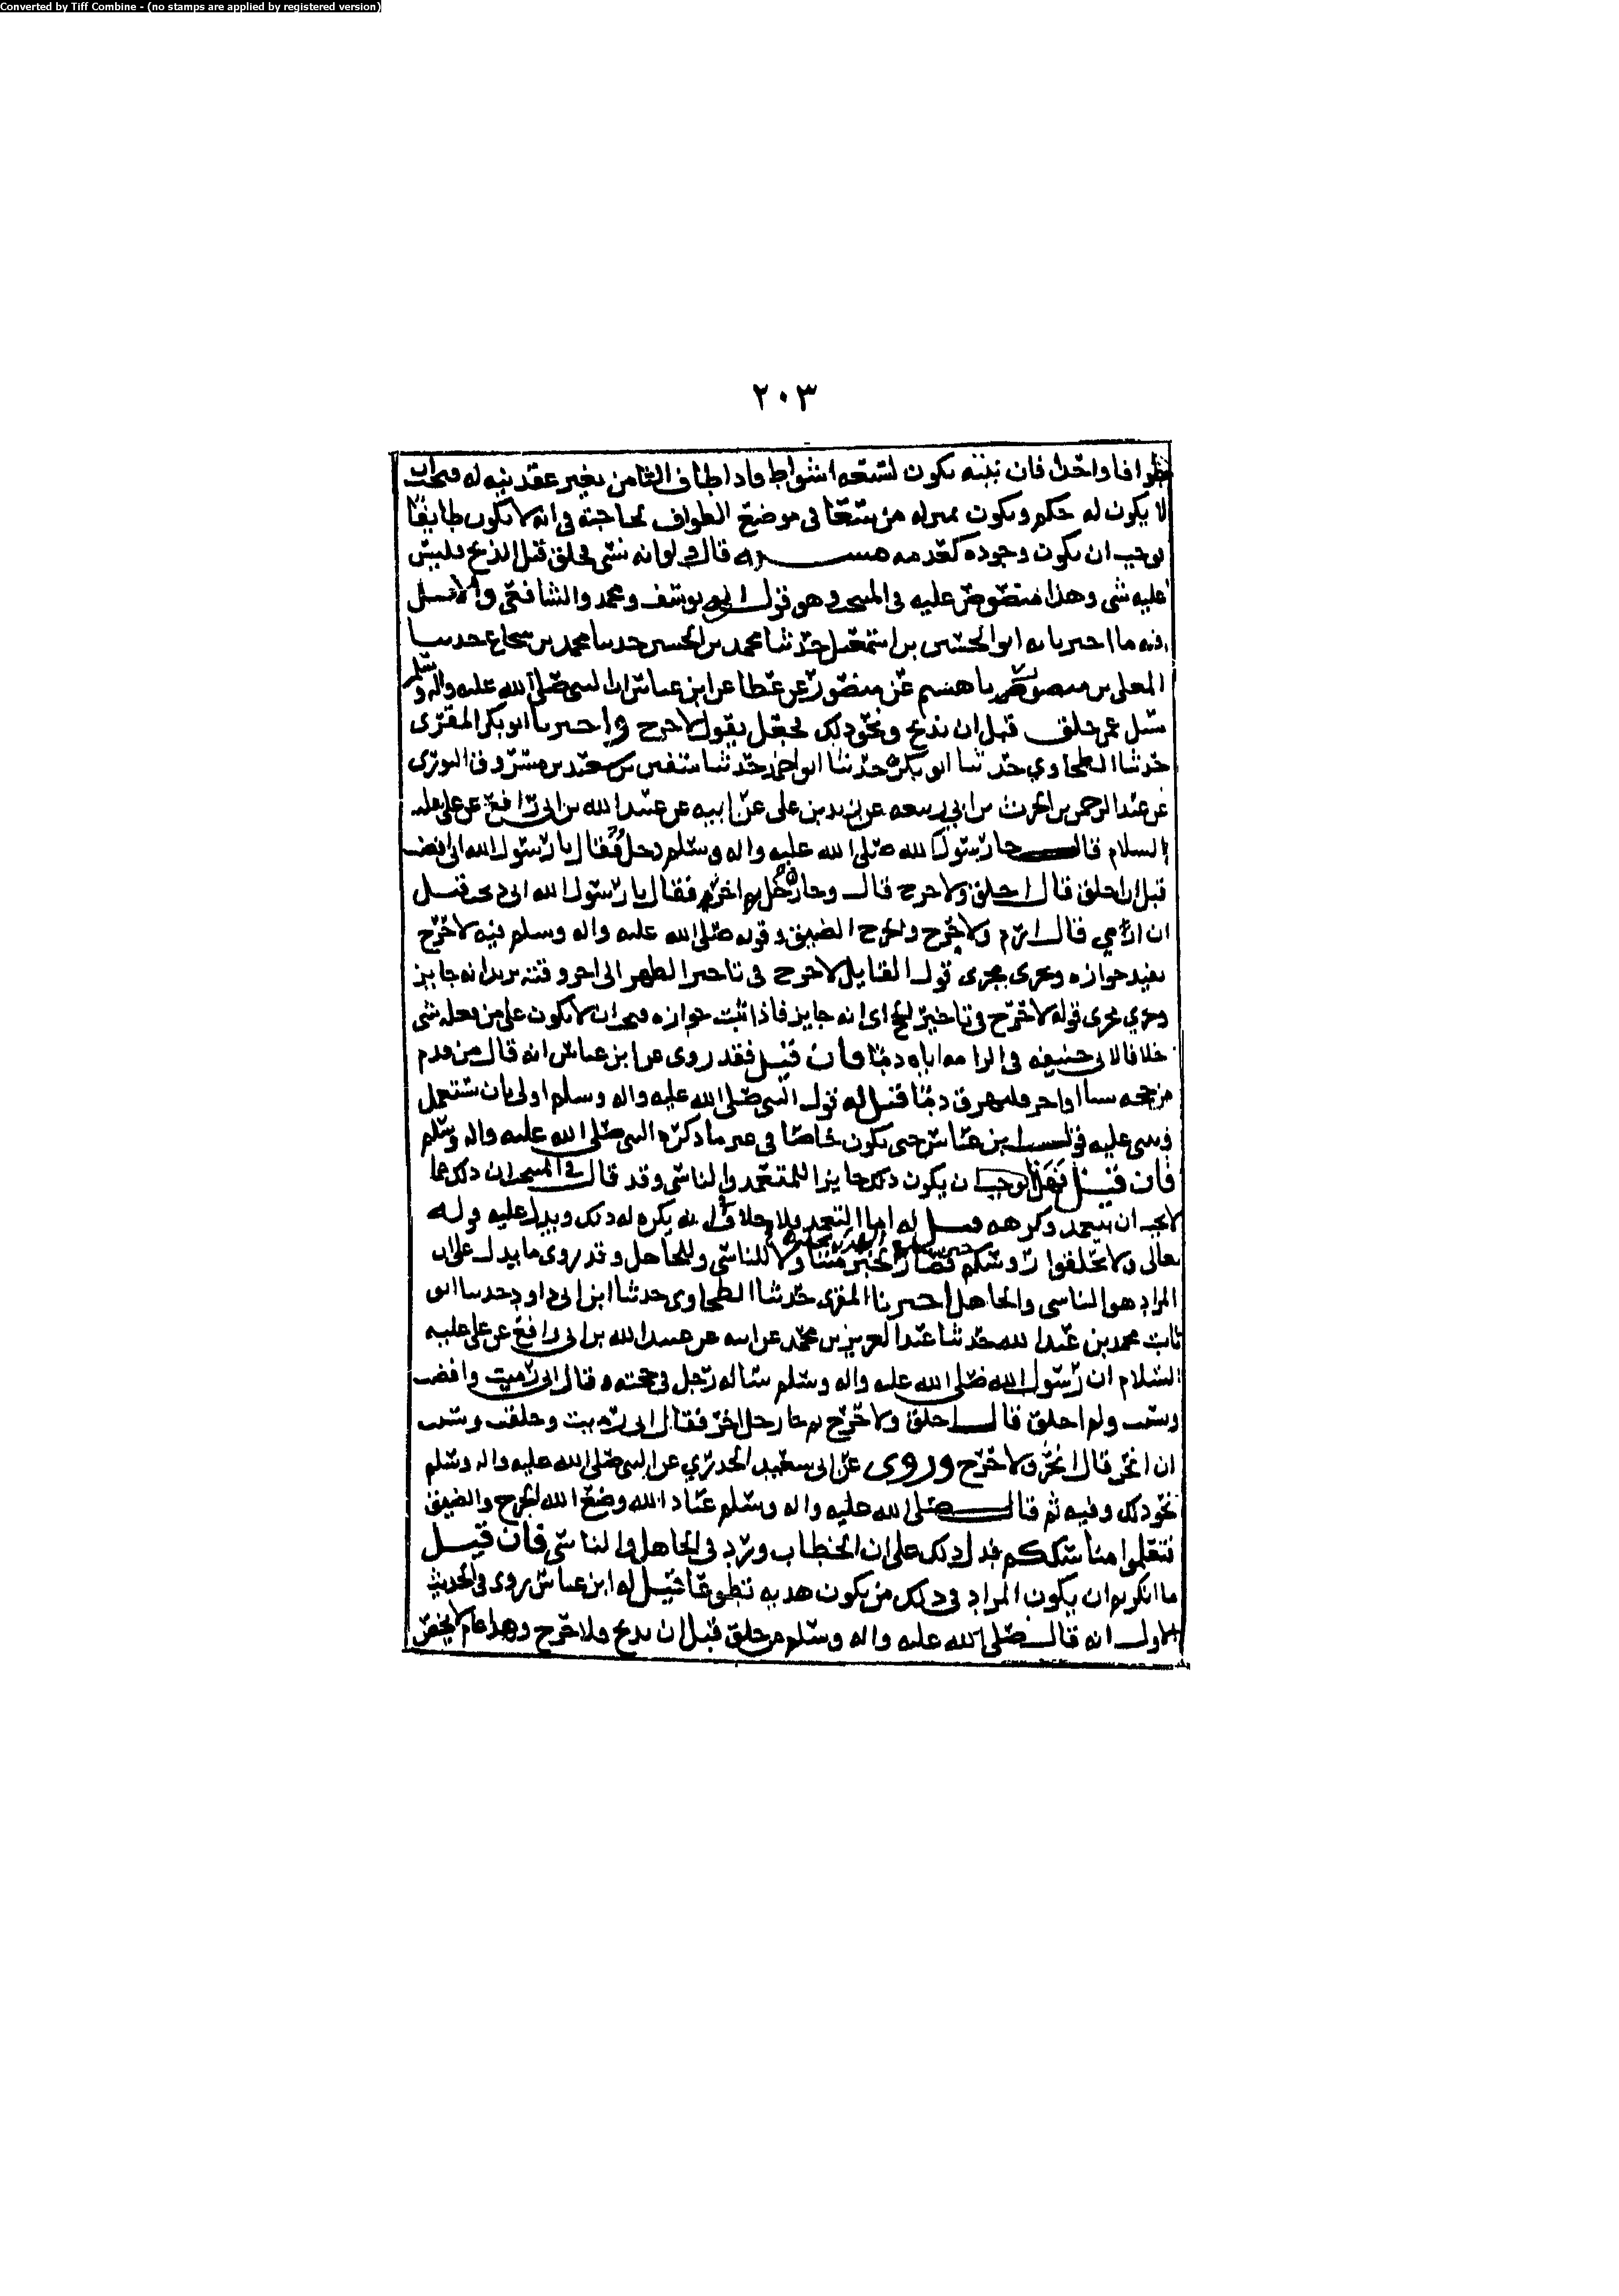 Converted by Tiff Combine - (no stamps are applied by registered version)
٢٠٣
طوافا واحدا فان نيته تكون لسبعة اشواط فاذا طاف الثامن بغير عقد نية له وجب ان
لا يكون له حكم ويكون بمنزلة من سعا في موضع الطواف لحاجته في انه لا يكون طايفا
يوجب ان يكون وجوده كعدمه مسئلة قال ولو انه نسي فحلق قبل الذبح فليس
عليه شي وهذا منصوص عليه في المنتخب وهو قول ابي يوسف ومحمد والشافعي والاصل
فيه ما اخبرنا به ابو الحسين بن اسمعيل حدثنا محمد بن الحسين حدثنا محمد بن شجاع حدثنا
المعلى بن منصور عن هشيم عن منصور عن عطا عن ابن عباس ان النبي صلى الله عليه واله وسلم
سئل عمن حلق قبل ان يذبح ونحو ذلك فجعل يقول لا حرج واخبرنا ابو بكر المقري
حدثنا الطحاوي حدثنا ابو بكرة حدثنا ابو احمد حدثنا سفين بن سعيد بن مسروق الثوري
عن عبد الرحمن بن الحرث بن ابي ربيعة عن زيد بن علي عن ابيه عن عبيد الله بن ابي رافع عن علي عليه
السلام قال جا رسول الله صلى الله عليه واله وسلم رجل فقال يا رسول الله اني افضت
قبل ان احلق قال احلق ولا حرج قال وجاه رجل اخر فقال يا رسول الله اني ذبحت قبل
ان ارمي قال ارم ولا حرج والحرج الضيق وقوله صلى الله عليه واله وسلم فيه لا حرج
يفيد جوازه وجرى مجرى قول القايل لا حرج في تاخير الظهر الى اخر وقته يريد انه جايز
وجرى مجرى قوله لا حرج في تاخير الحج اي انه جايز فاذا ثبت جوازه وجب ان لا يكون على من فعله شي
خلافا لابي حنيفة في الزامه اياه دما فان قيل فقد روي عن ابن عباس انه قال من قدم
من حجه شيا او اخر فليهرق دما قيل له قول النبي صلى الله عليه واله وسلم اولى بان يستعمل
ويبنى عليه قول ابن عباس حتى يكون خاصا في غير ما ذكره النبي صلى الله عليه واله وسلم
فان قيل فهذا يوجب ان يكون ذلك جايزا للمتعمد والناسي وقد قال في المنتخب ان ذلك مما
لا يجب ان يتعمد وكرهه قيل له اما التعمد فلا خلاف انه يكره له ذلك ويدل عليه قوله
تعالى ولا تحلقوا روسكم فصار الخبر للناسي وللجاهل وقد روي ما يدل على ان
المراد هو الناسي والجاهل اخبرنا المقري حدثنا الطحاوي حدثنا ابن ابي داود حدثنا ابو
ثابت محمد بن عبيد الله حدثنا عبد العزيز بن محمد عن ابيه عن عبيد الله بن ابي رافع عن علي عليه
السلام ان رسول الله صلى الله عليه واله وسلم ساله رجل في حجته فقال اني رميت وافضت
ونسيت ولم احلق قال احلق ولا حرج ثم جا رجل اخر فقال اني رميت وحلقت ونسيت
ان انحر قال انحر ولا حرج وروى عن ابي سعيد الخدري عن النبي صلى الله عليه واله وسلم
نحو ذلك وفيه ثم قال صلى الله عليه واله وسلم عباد الله وضع الله الحرج والضيق
تعلموا مناسككم فدل ذلك على ان الخطاب ورد في الجاهل والناسي فان قيل
ما انكرتم ان يكون المراد في ذلك من يكون هديه تطوعا قيل له ابن عباس روى في الحديث
الاول انه قال صلى الله عليه واله وسلم من حلق قبل ان يذبح فلا حرج وهذا عام لا يخص